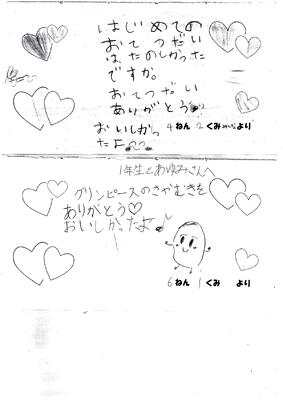 はじめての
おてつだい
はたのしかった
ですか。
おてつだい
ありがとう
おいしかっ
たよ
4ねん 2くみ より
1年生とあゆみさんへ
グリンピースのさやむきを
ありがとう♡
おいしかったよ♪
6ねん 1くみ より